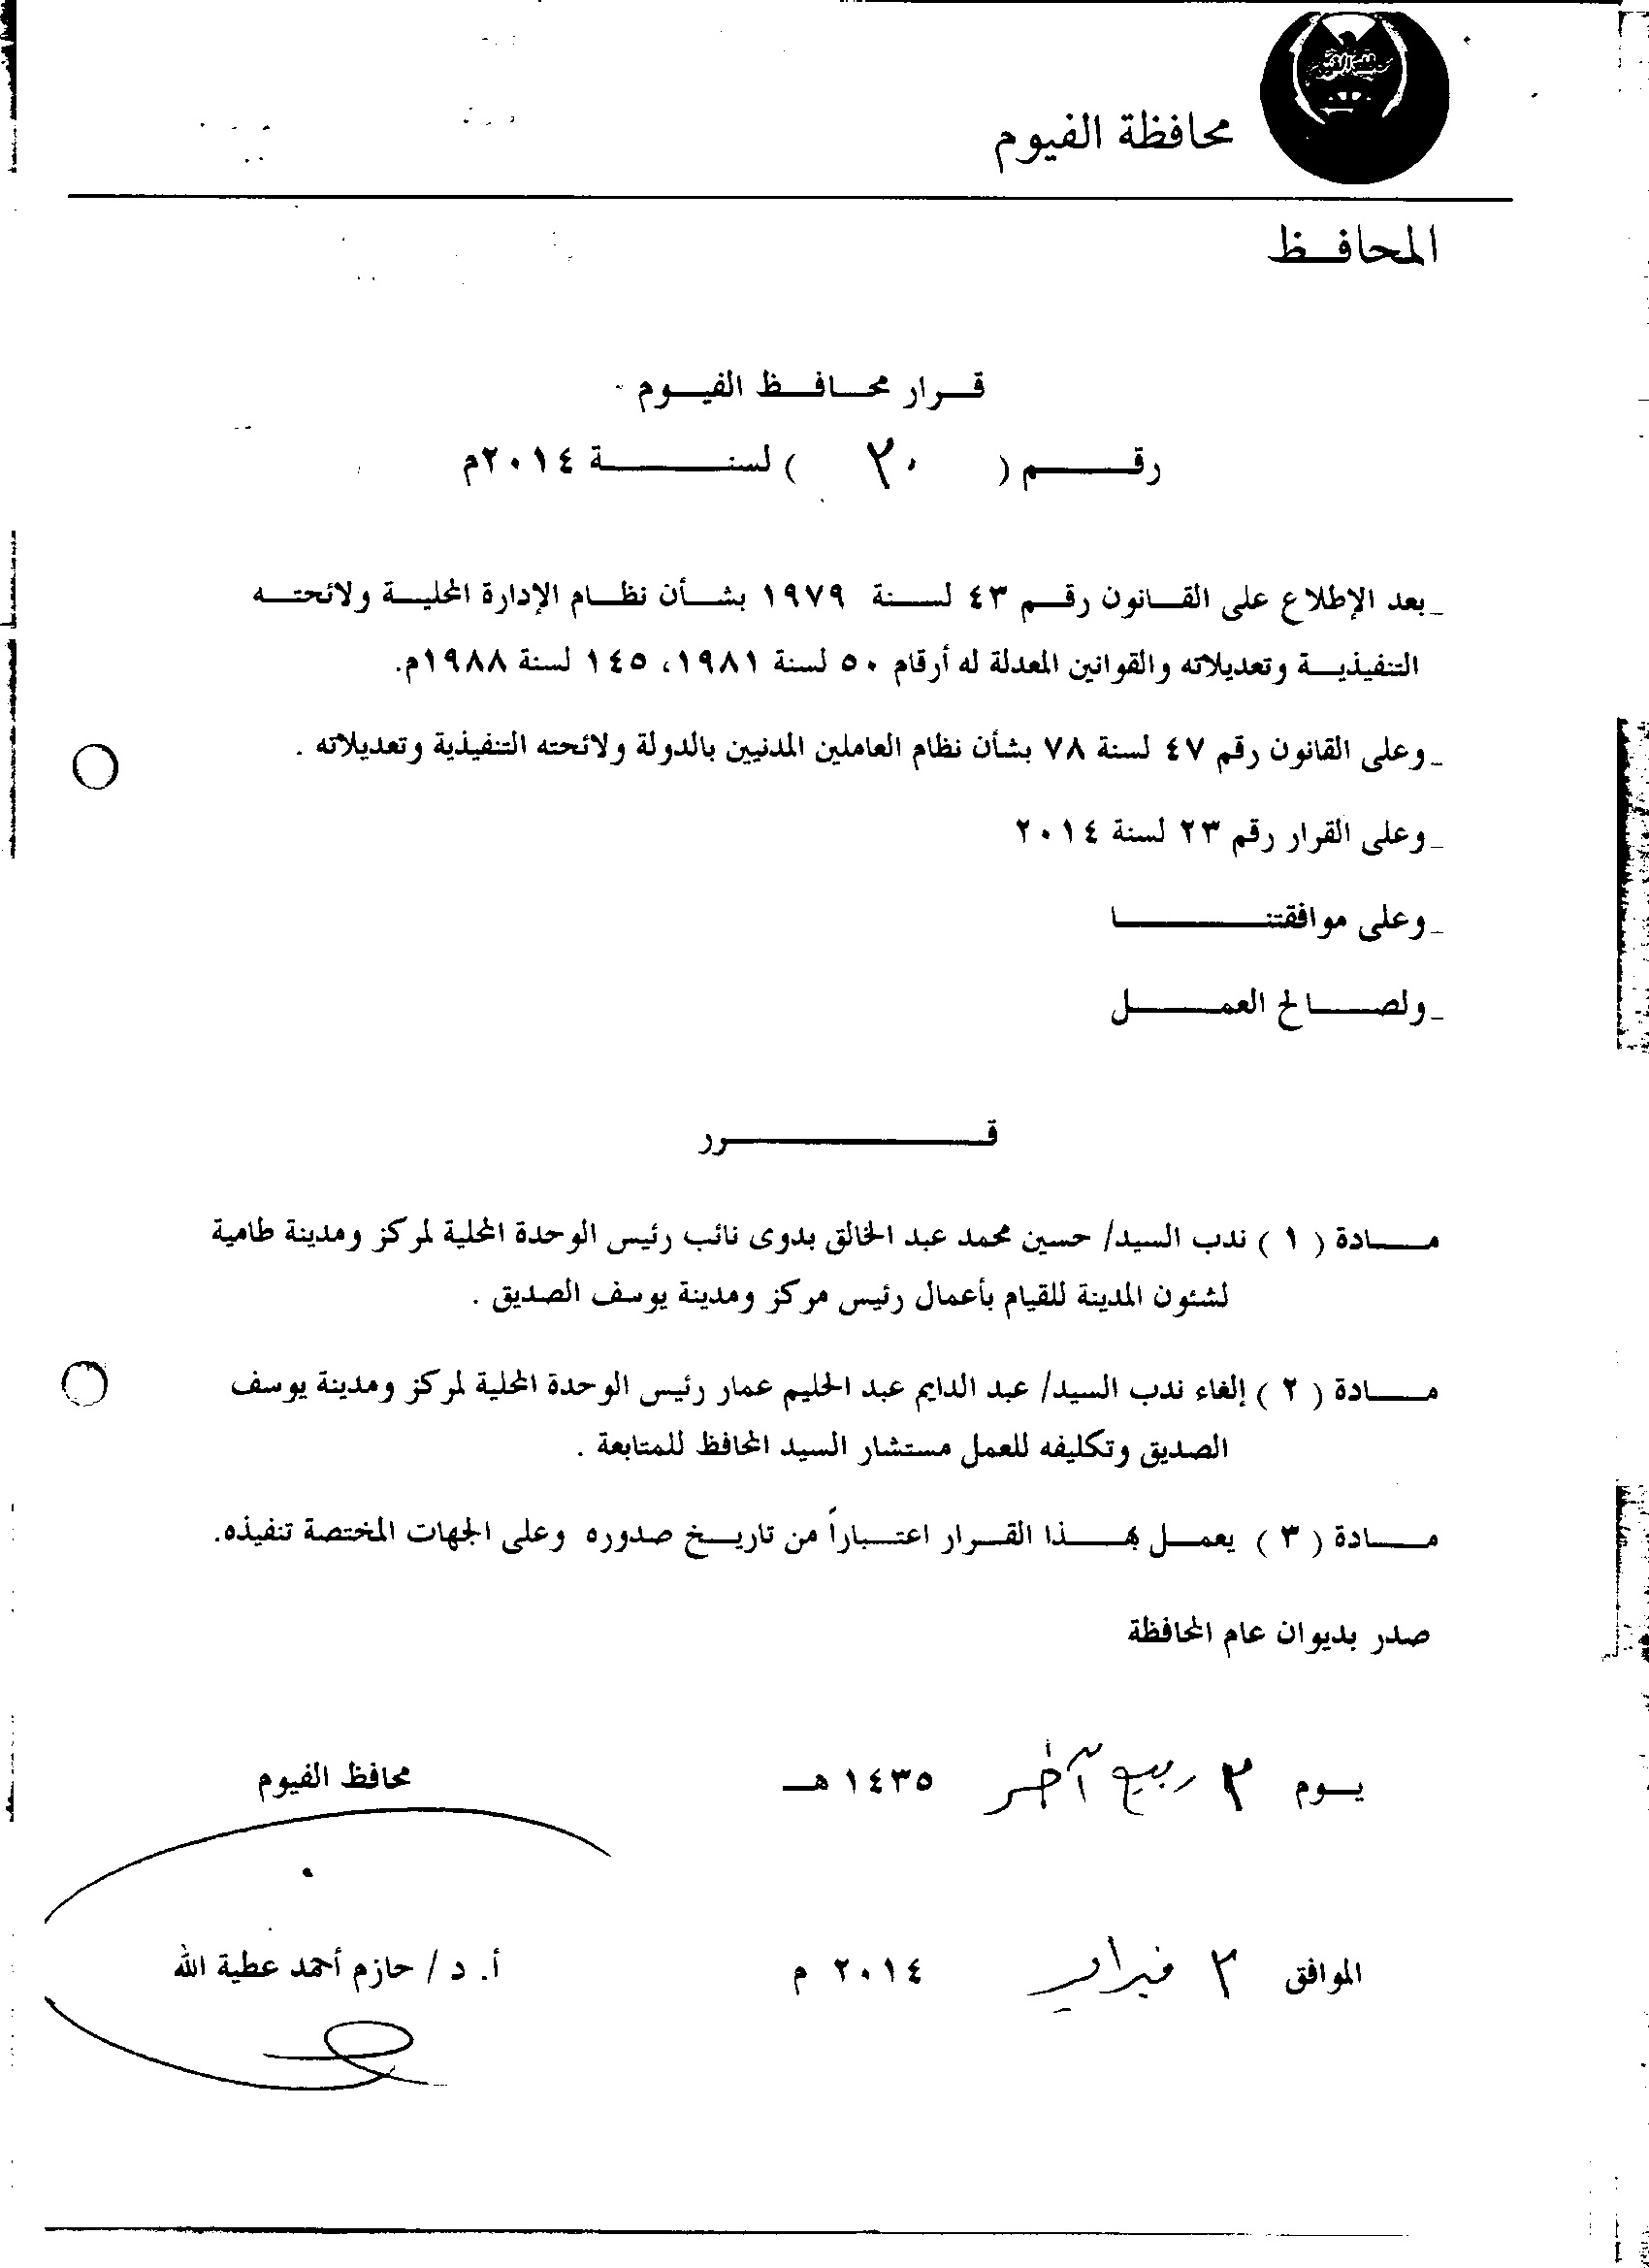 محافظة الفيوم
المحافظ
قرار محافظ الفيوم
رقم ( ٢٠ ) لسنة ٢٠١٤م
_ بعد الإطلاع على القانون رقم ٤٣ لسنة ١٩٧٩ بشأن نظام الإدارة المحلية ولائحته
التنفيذية وتعديلاته والقوانين المعدلة له أرقام ٥٠ لسنة ١٩٨١، ١٤٥ لسنة ١٩٨٨م.
_ وعلى القانون رقم ٤٧ لسنة ٧٨ بشأن نظام العاملين المدنيين بالدولة ولائحته التنفيذية وتعديلاته .
_ وعلى القرار رقم ٢٣ لسنة ٢٠١٤
_ وعلى موافقتنا
_ ولصالح العمل
قرر
مادة ( ١ ) ندب السيد/ حسين محمد عبد الخالق بدوى نائب رئيس الوحدة المحلية لمركز ومدينة طامية
لشئون المدينة للقيام بأعمال رئيس مركز ومدينة يوسف الصديق .
مادة ( ٢ ) إلغاء ندب السيد/ عبد الدايم عبد الحليم عمار رئيس الوحدة المحلية لمركز ومدينة يوسف
الصديق وتكليفه للعمل مستشار السيد المحافظ للمتابعة .
مادة ( ٣ ) يعمل بهذا القرار اعتباراً من تاريخ صدوره وعلى الجهات المختصة تنفيذه.
صدر بديوان عام المحافظة
يوم ٣ ربيع آخر ١٤٣٥ هـ
محافظ الفيوم
الموافق ٣ فبراير ٢٠١٤ م
أ. د / حازم أحمد عطية الله